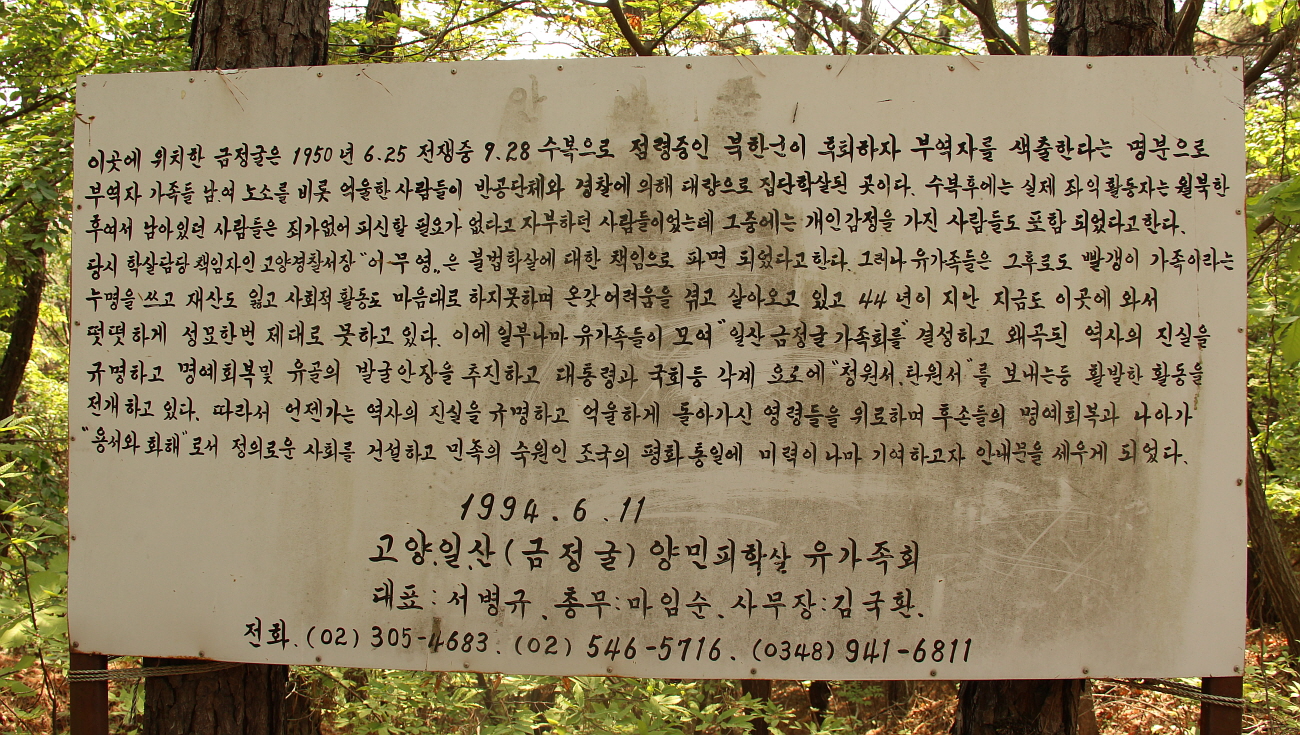 안 내 문
이곳에 위치한 금정굴은 1950년 6.25 전쟁중 9.28 수복으로 점령중인 북한군이 후퇴하자 부역자를 색출한다는 명분으로
부역자 가족들 남.여 노소를 비롯 억울한 사람들이 반공단체와 경찰에 의해 대량으로 집단학살된 곳이다. 수복후에는 실제 좌익활동자는 월북한
후여서 남아있던 사람들은 죄가없어 피신할 필요가 없다고 자부하던 사람들이었는데 그중에는 개인감정을 가진 사람들도 포함 되었다고한다.
당시 학살담당 책임자인 고양경찰서장 "이무영„은 불법학살에 대한 책임으로 파면 되었다고한다. 그러나 유가족들은 그후로도 빨갱이 가족이라는
누명을 쓰고 재산도 잃고 사회적 활동도 마음대로 하지못하며 온갖 어려움을 겪고 살아오고 있고 44년이 지난 지금도 이곳에 와서
떳떳하게 성묘한번 제대로 못하고 있다. 이에 일부나마 유가족들이 모여 "일산 금정굴 가족회를" 결성하고 왜곡된 역사의 진실을
규명하고 명예회복및 유골의 발굴안장을 추진하고 대통령과 국회등 각계 요로에 "청원서.탄원서"를 보내는등 활발한 활동을
전개하고 있다. 따라서 언젠가는 역사의 진실을 규명하고 억울하게 돌아가신 영령들을 위로하며 후손들의 명예회복과 나아가
"용서와 화해"로서 정의로운 사회를 건설하고 민족의 숙원인 조국의 평화통일에 미력이나마 기여하고자 안내문을 세우게 되었다.
1994.6.11
고양.일산(금정굴) 양민피학살 유가족회
대표:서병규. 총무:마임순. 사무장:김국환.
전화.(02) 305-4683. (02) 546-5716. (0348) 941-6811